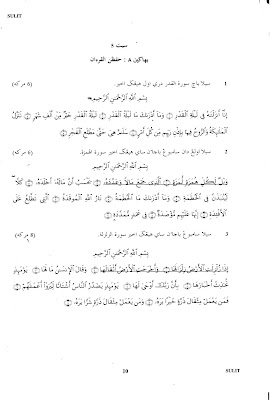 SULIT
سيت 5
بهاڬين A : حفظن القرءان
1 سيلا باچ سورة القدر دري اول هيڠڬ اخير (6 مركه)
بِسْمِ اللَّهِ الرَّحْمَٰنِ الرَّحِيمِ
إِنَّا أَنزَلْنَٰهُ فِى لَيْلَةِ ٱلْقَدْرِ ۝ وَمَآ أَدْرَىٰكَ مَا لَيْلَةُ ٱلْقَدْرِ ۝ لَيْلَةُ ٱلْقَدْرِ خَيْرٌ مِّنْ أَلْفِ شَهْرٍ ۝ تَنَزَّلُ
ٱلْمَلَٰٓئِكَةُ وَٱلرُّوحُ فِيهَا بِإِذْنِ رَبِّهِم مِّن كُلِّ أَمْرٍ ۝ سَلَٰمٌ هِىَ حَتَّىٰ مَطْلَعِ ٱلْفَجْرِ ۝
2 سيلا اولڠ دان سامبوڠ باچاٴن ساي هيڠڬ اخير سورة الهمزة. (6 مركه)
بِسْمِ اللَّهِ الرَّحْمَٰنِ الرَّحِيمِ
وَيْلٌ لِّكُلِّ هُمَزَةٍ لُّمَزَةٍ ۝ ٱلَّذِى جَمَعَ مَالًا وَعَدَّدَهُۥ ۝ يَحْسَبُ أَنَّ مَالَهُۥٓ أَخْلَدَهُۥ ۝ كَلَّا ۖ
لَيُنۢبَذَنَّ فِى ٱلْحُطَمَةِ ۝ وَمَآ أَدْرَىٰكَ مَا ٱلْحُطَمَةُ ۝ نَارُ ٱللَّهِ ٱلْمُوقَدَةُ ۝ ٱلَّتِى تَطَّلِعُ عَلَى
ٱلْأَفْـِٔدَةِ ۝ إِنَّهَا عَلَيْهِم مُّؤْصَدَةٌ ۝ فِى عَمَدٍ مُّمَدَّدَةٍۭ ۝
3 سيلا سامبوڠ باچاٴن ساي هيڠڬ اخير سورة الزلزلة. (8 مركه)
بِسْمِ اللَّهِ الرَّحْمَٰنِ الرَّحِيمِ
إِذَا زُلْزِلَتِ ٱلْأَرْضُ زِلْزَالَهَا ۝ وَأَخْرَجَتِ ٱلْأَرْضُ أَثْقَالَهَا ۝ وَقَالَ ٱلْإِنسَٰنُ مَا لَهَا ۝ يَوْمَئِذٍ
تُحَدِّثُ أَخْبَارَهَا ۝ بِأَنَّ رَبَّكَ أَوْحَىٰ لَهَا ۝ يَوْمَئِذٍ يَصْدُرُ ٱلنَّاسُ أَشْتَاتًا لِّيُرَوْا۟ أَعْمَٰلَهُمْ ۝
فَمَن يَعْمَلْ مِثْقَالَ ذَرَّةٍ خَيْرًا يَرَهُۥ ۝ وَمَن يَعْمَلْ مِثْقَالَ ذَرَّةٍ شَرًّا يَرَهُۥ ۝
10
SULIT